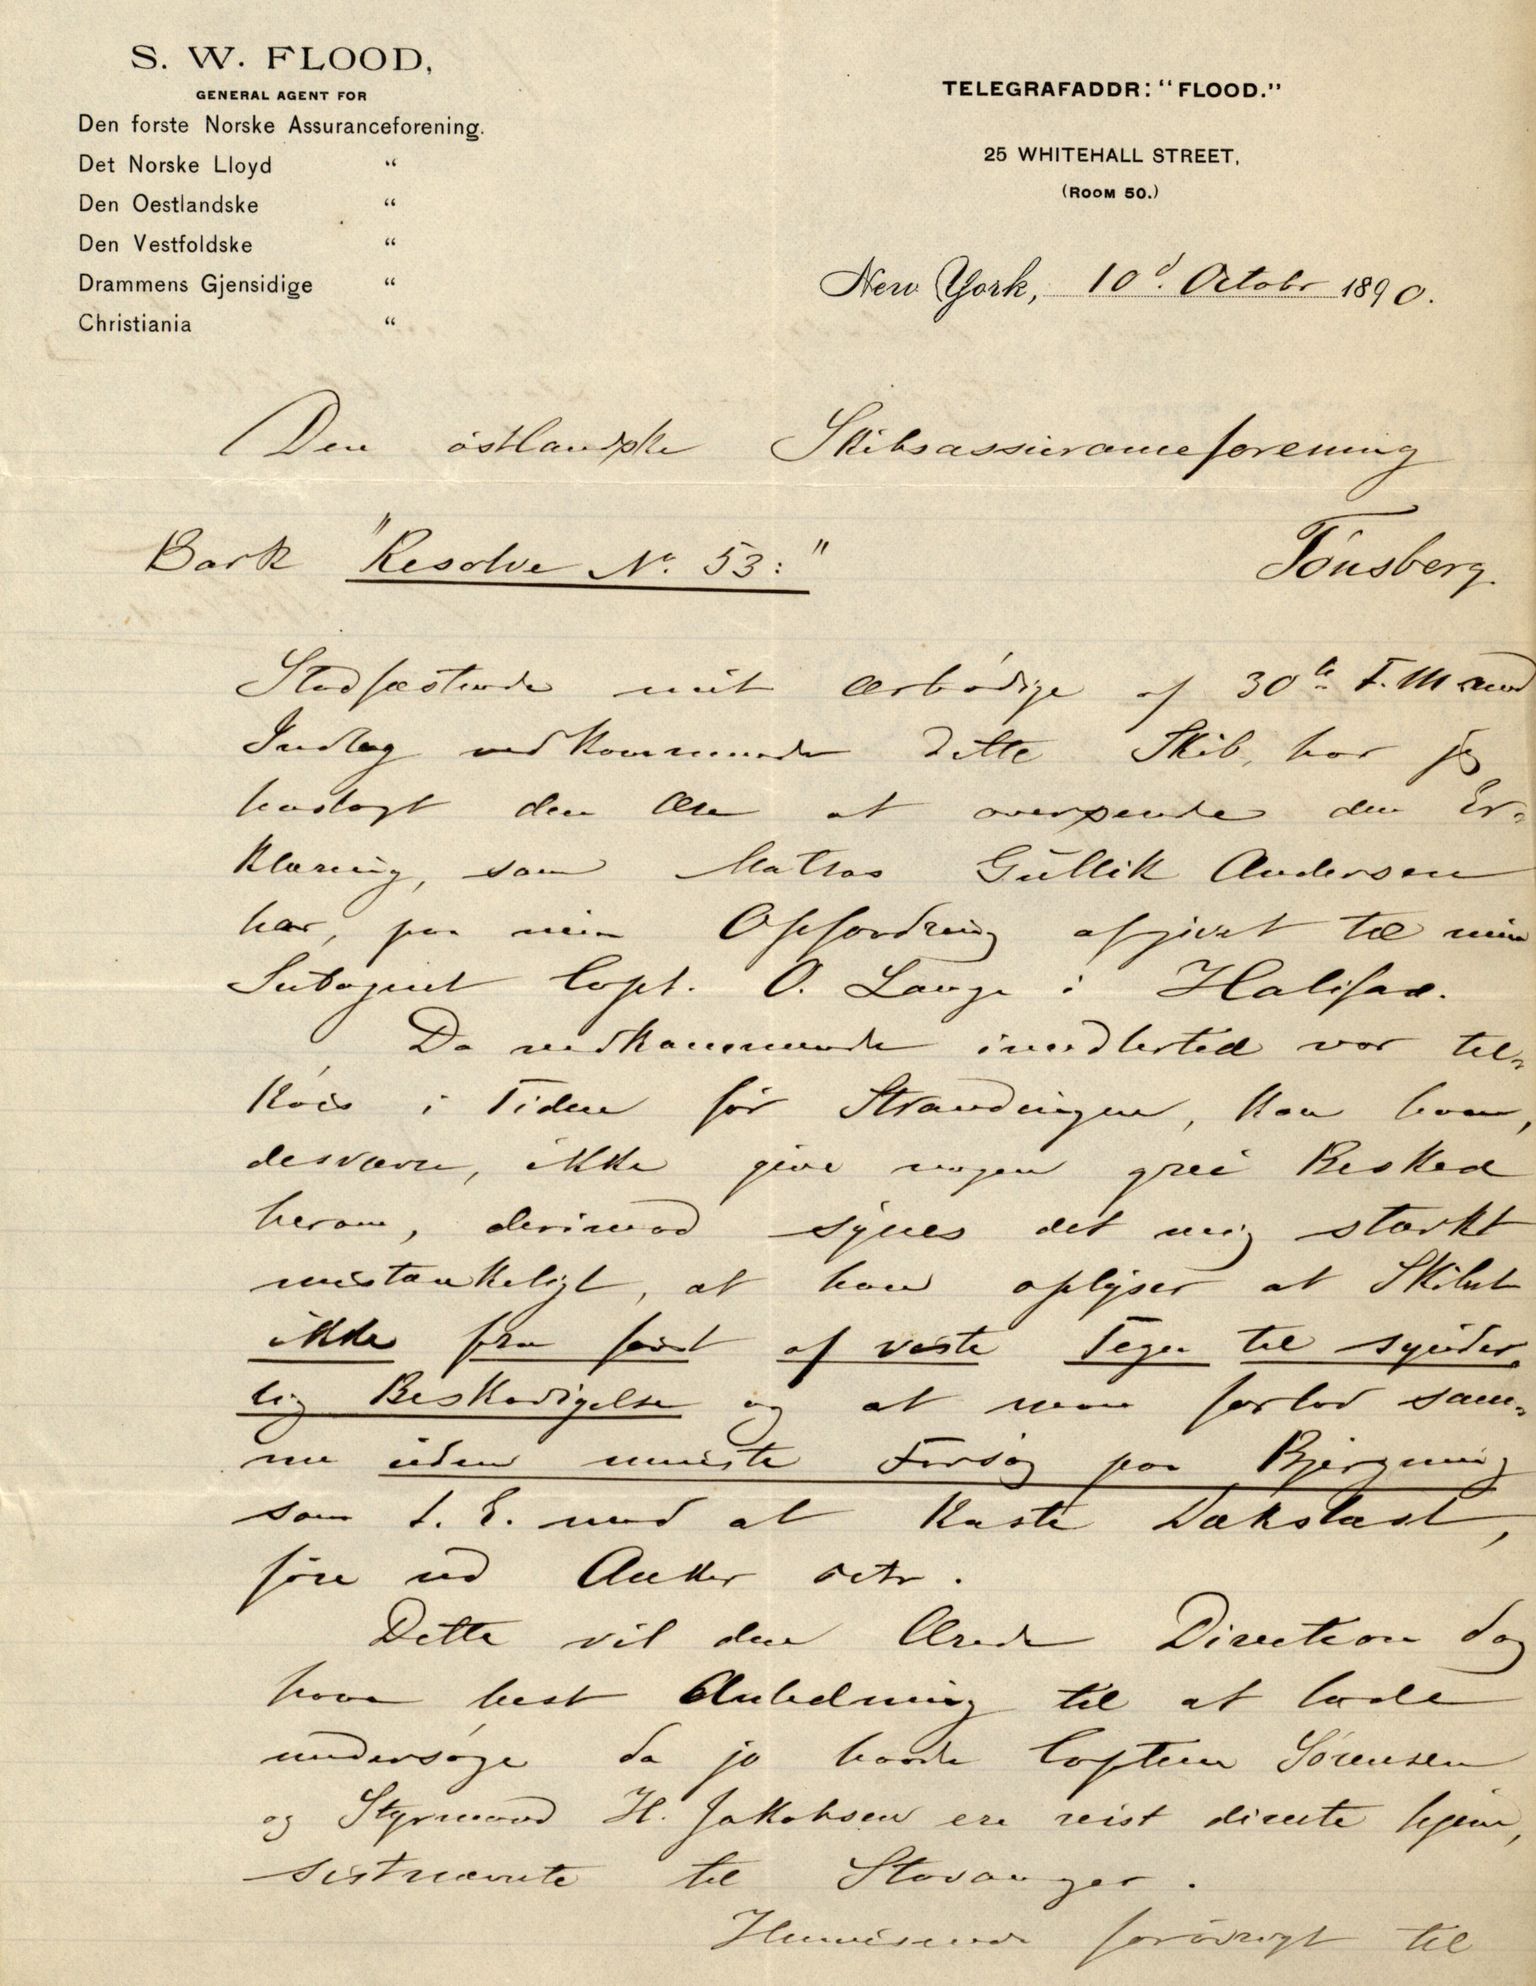 S. W. FLOOD,
GENERAL AGENT FOR
Den forste Norske Assuranceforening.
Det Norske Lloyd "
Den Oestlandske "
Den Vestfoldske "
Drammens Gjensidige "
Christiania "
TELEGRAFADDR: "FLOOD."
25 WHITEHALL STREET,
(ROOM 50.)
New York, 10d. Octobr 1890.
Den östlandske Skibsassuranceforening
Tönsberg.
Bark "Resolve No. 53:"
Stadfæstende mit ærbödige af 30te F. M. med
Indlæg vedkommende dette Skib, har jeg
herlagt den Ære at oversende den Er-
klæring, som Matros Gullik Andersen
har, paa min Opfordring afgivet til min
Subagent Capt. O. Lange i Halifax.
Da vedkommende imidlertid var til-
köis i Tiden för Strandingen, kan han,
desværre, ikke give nogen grei Besked
herom, derimod synes det mig stærkt
mistænkeligt, at han oplyser at Skibet
ikke fra först af viste Tegn til synder-
lig Beskadigelse og at man forlod sam-
me uden mindste Forsög paa Bjergning
som f. E. med at kaste Dækslast,
före ud Anker octr.
Dette vil den Ærede Direction dog
have best Anledning til at lade
undersöge da jo baade Captein Sörensen
og Styrmand H. Jakobsen ere reist directe hjem,
sistnævnte til Stavanger.
Henvisende forövrigt til